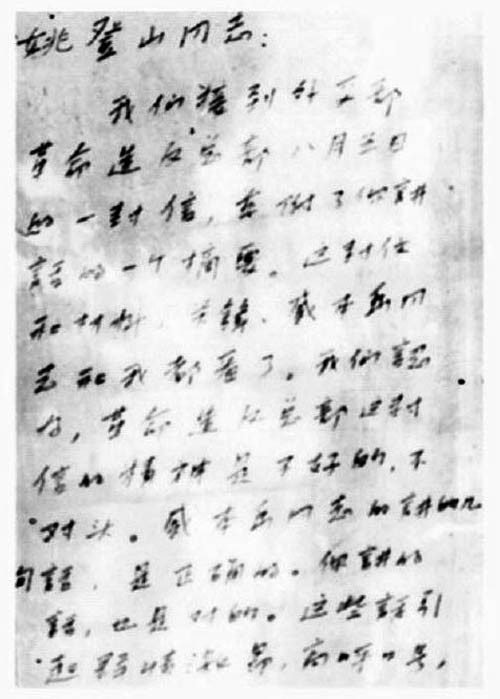 姚登山同志:
我们接到外交部
革命造反总部八月三日
的一封信,附了你讲
話的一个摘要。这封信
和材料,关鋒、戚本禹同
志和我都看了。我们認
为,革命造反总部这封
信的精神是不好的,不
对头。戚本禹同志的讲的几
句話,是正确的。你讲的
話,也是对的。这些話引
起群情激昂,高呼口号,